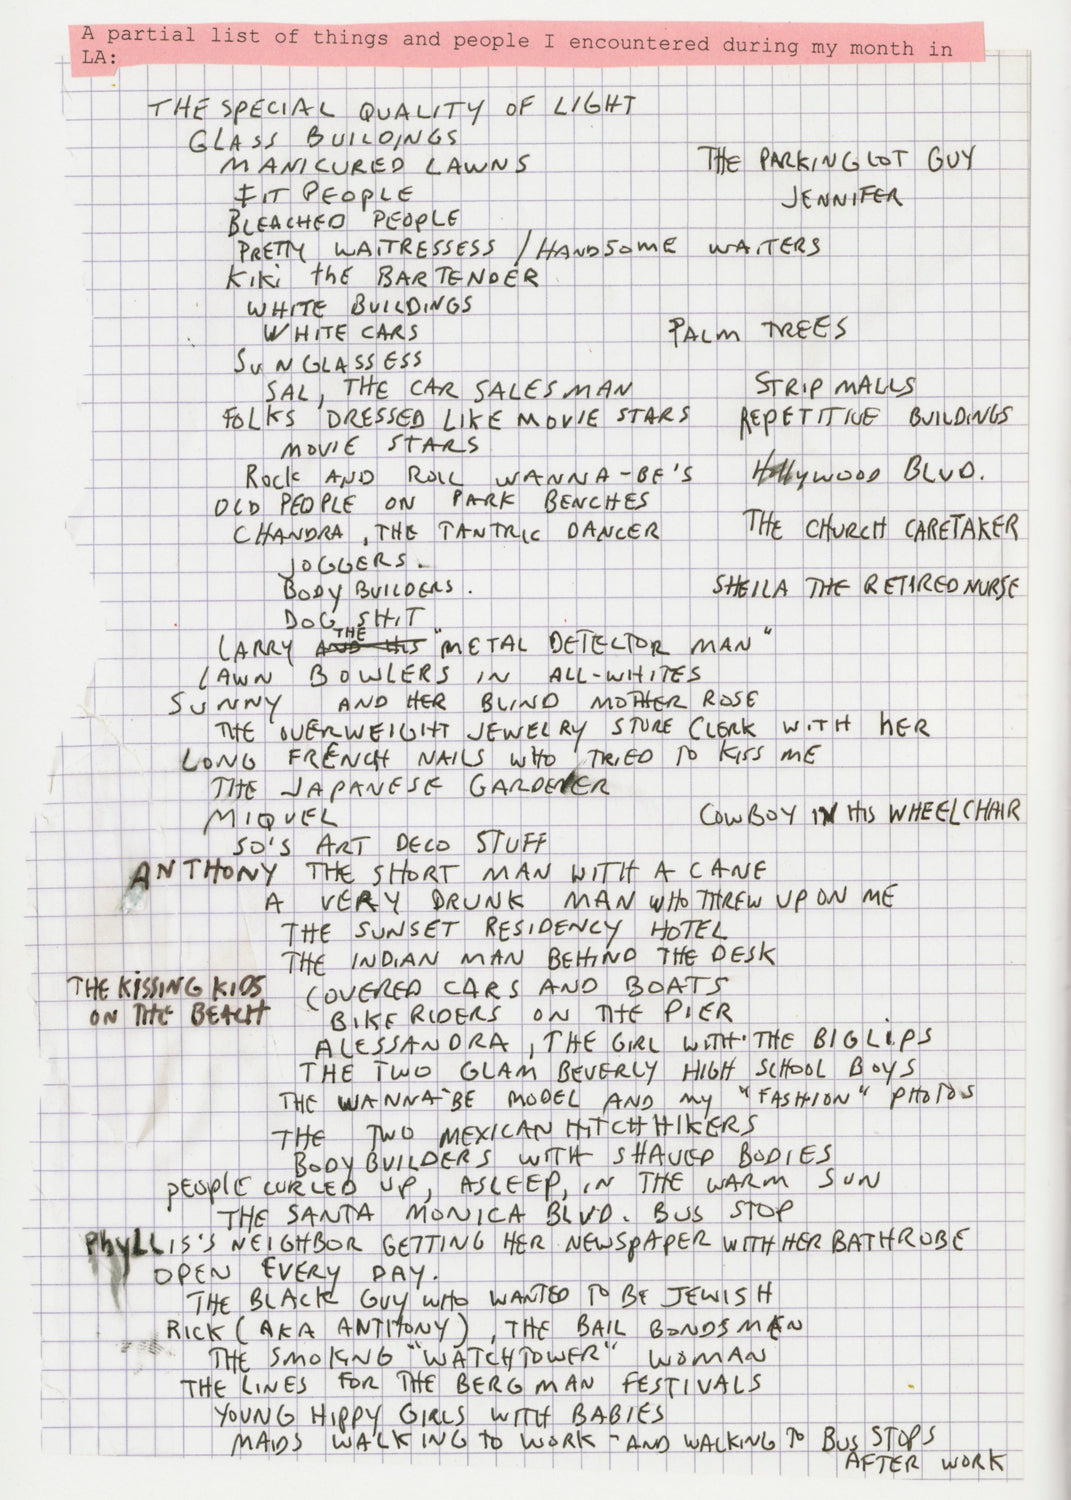 A partial list of things and people I encountered during my month in
LA:
THE SPECIAL QUALITY OF LIGHT
GLASS BUILDINGS
MANICURED LAWNS
THE PARKING LOT GUY
FIT PEOPLE
JENNIFER
BLEACHED PEOPLE
PRETTY WAITRESSESS / HANDSOME WAITERS
KIKI the BARTENDER
WHITE BUILDINGS
WHITE CARS
PALM TREES
SUNGLASSESS
SAL, THE CAR SALESMAN
STRIP MALLS
FOLKS DRESSED LIKE MOVIE STARS
REPETITIVE BUILDINGS
MOVIE STARS
ROCK AND ROLL WANNA-BE'S
HOLLYWOOD BLVD.
OLD PEOPLE ON PARK BENCHES
CHANDRA, THE TANTRIC DANCER
THE CHURCH CARETAKER
JOGGERS.
BODY BUILDERS.
SHEILA THE RETIRED NURSE
DOG SHIT
LARRY AND HIS THE "METAL DETECTOR MAN"
LAWN BOWLERS IN ALL-WHITES
SUNNY AND HER BLIND MOTHER ROSE
THE OVERWEIGHT JEWELRY STORE CLERK WITH HER
LONG FRENCH NAILS WHO TRIED TO KISS ME
THE JAPANESE GARDENER
MIQUEL
COWBOY IN HIS WHEELCHAIR
50'S ART DECO STUFF
ANTHONY THE SHORT MAN WITH A CANE
A VERY DRUNK MAN WHO THREW UP ON ME
THE SUNSET RESIDENCY HOTEL
THE INDIAN MAN BEHIND THE DESK
THE KISSING KIDS
ON THE BEACH
COVERED CARS AND BOATS
BIKE RIDERS ON THE PIER
ALESSANDRA, THE GIRL WITH THE BIG LIPS
THE TWO GLAM BEVERLY HIGH SCHOOL BOYS
THE WANNA-BE MODEL AND MY "FASHION" PHOTOS
THE TWO MEXICAN HITCHHIKERS
BODY BUILDERS WITH SHAVED BODIES
PEOPLE CURLED UP, ASLEEP, IN THE WARM SUN
THE SANTA MONICA BLVD. BUS STOP
PHYLLIS'S NEIGHBOR GETTING HER NEWSPAPER WITH HER BATHROBE
OPEN EVERY DAY.
THE BLACK GUY WHO WANTED TO BE JEWISH
RICK (AKA ANTHONY), THE BAIL BONDSMAN
THE SMOKING "WATCHTOWER" WOMAN
THE LINES FOR THE BERGMAN FESTIVALS
YOUNG HIPPY GIRLS WITH BABIES
MAIDS WALKING TO WORK - AND WALKING TO BUS STOPS
AFTER WORK